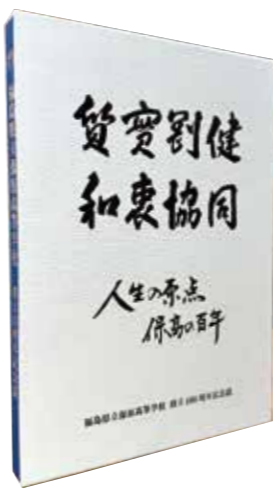 質實剛健
和衷協同
人生の原点
保高の百年
福島県立保原高等学校 創立100周年記念誌